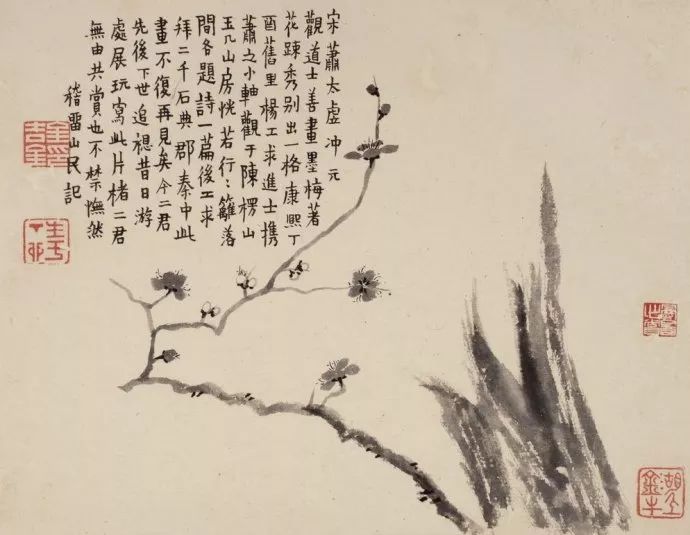 宋蕭太虛冲元
觀道士善畫墨梅著
花踈秀别出一格康熙丁
酉舊里楊工求進士携
蕭之小軸觀于陳楞山
玉几山房恍若行:籬落
間各題詩一篇後工求
拜二千石典郡秦中此
畫不復再見矣今二君
先後下世追想昔日游
處展玩寫此片楮二君
無由共賞也不禁憮然
稽畱山民記
金吉金印
生於丁卯
湖上金牛